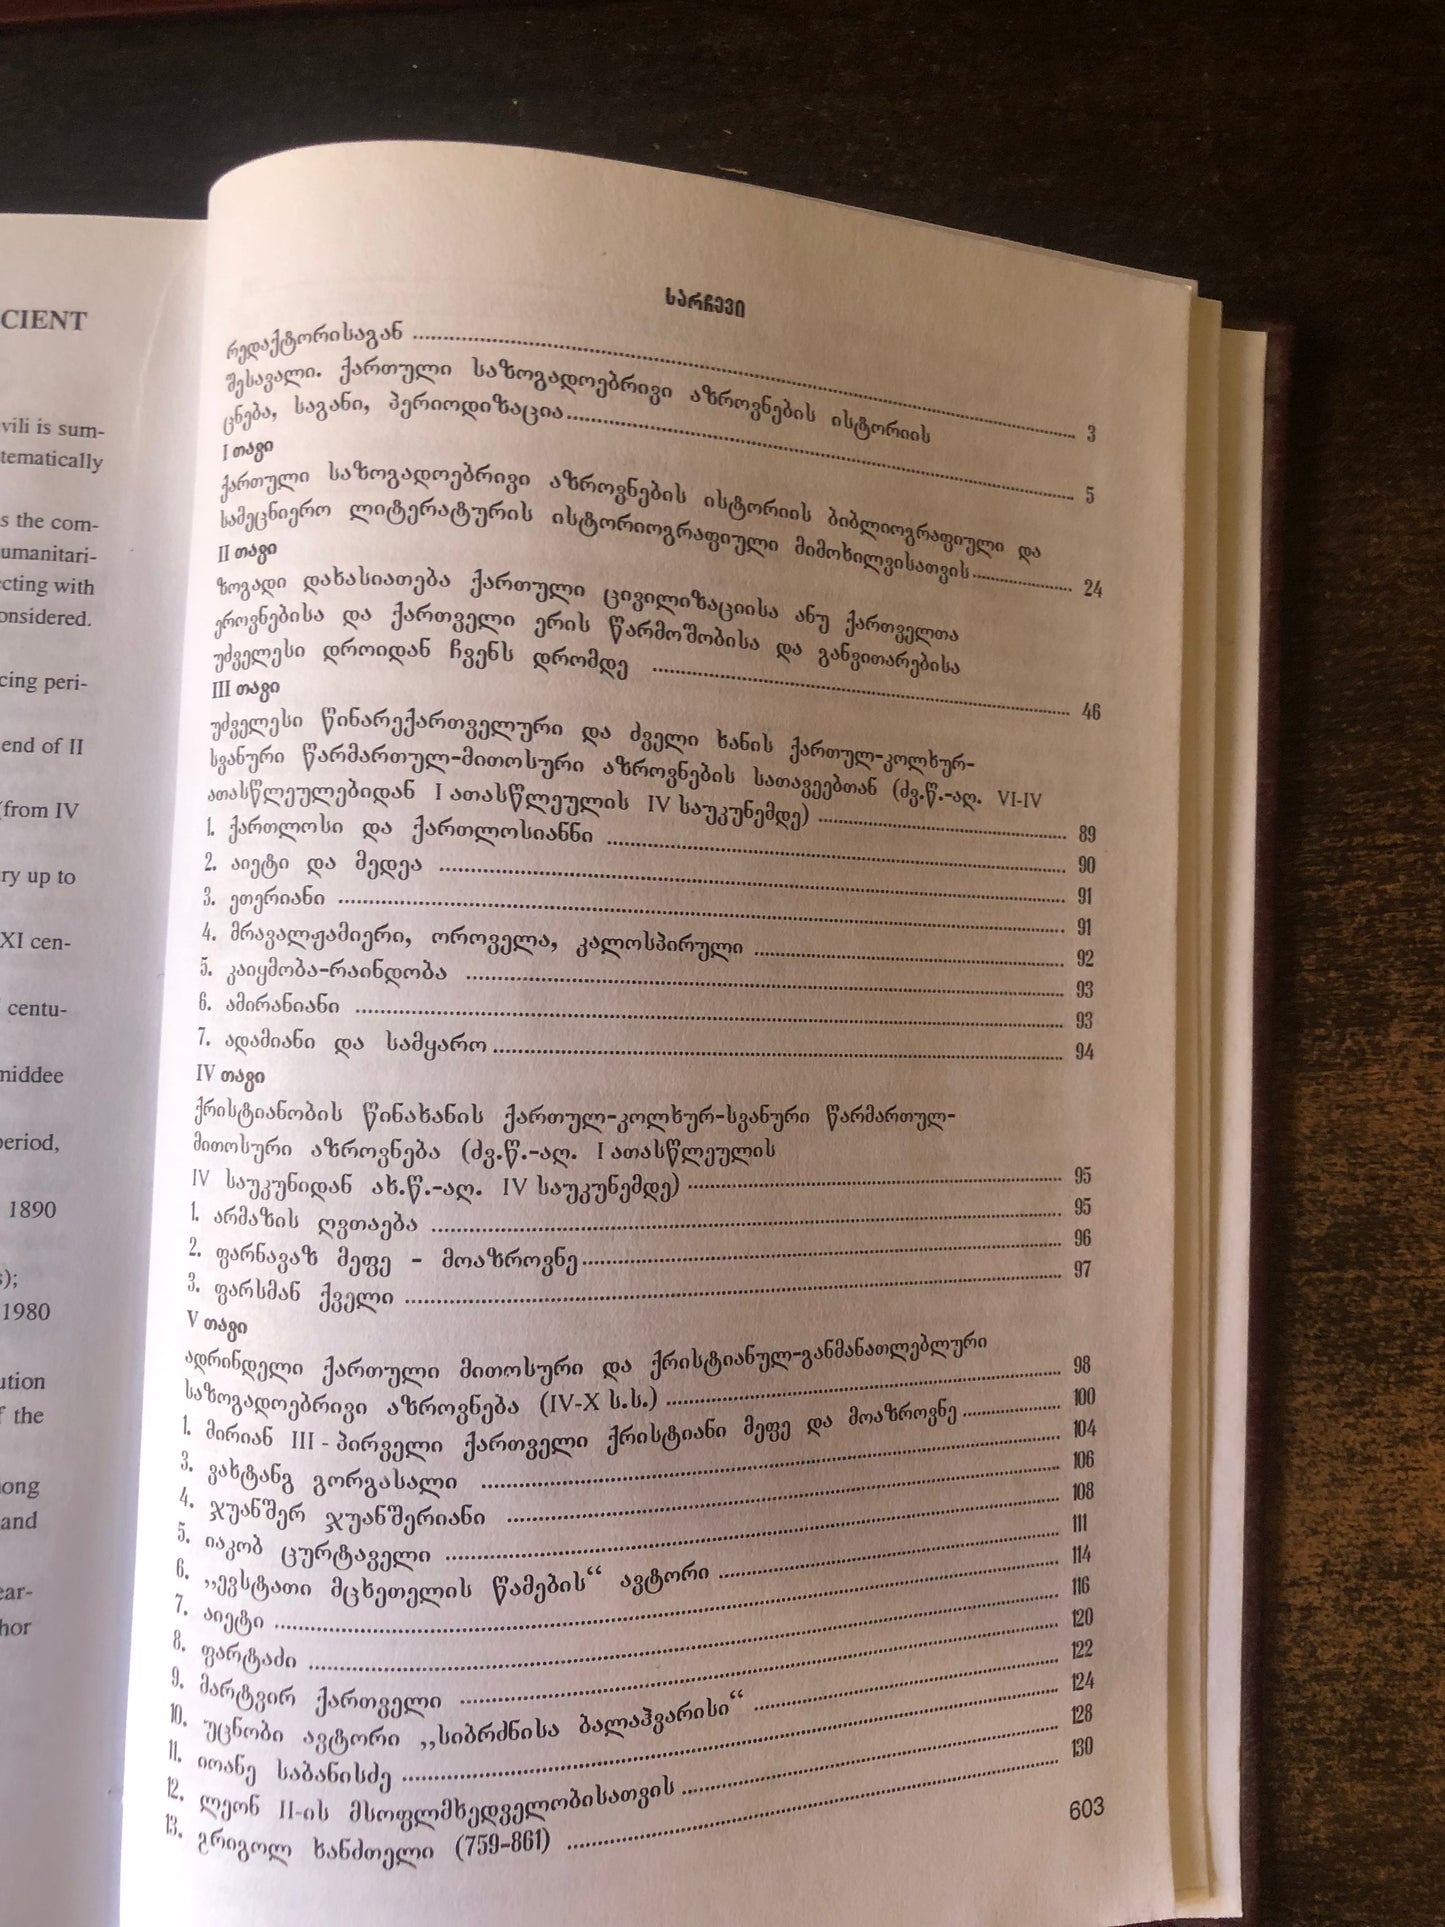 CIENT
vili is sum-
tematically
s the com-
umanitari-
ecting with
onsidered.
cing peri-
end of II
(from IV
ry up to
XI cen-
centu-
middee
period,
1890
s);
1980
ution
f the
nong
and
ear-
hor
სარჩევი
რედაქტორისაგან ........ 3
შესავალი. ქართული საზოგადოებრივი აზროვნების ისტორიის
ცნება, საგანი, პერიოდიზაცია ........ 5
I თავი
ქართული საზოგადოებრივი აზროვნების ისტორიის ბიბლიოგრაფიული და
სამეცნიერო ლიტერატურის ისტორიოგრაფიული მიმოხილვისათვის ........ 24
II თავი
ზოგადი დახასიათება ქართული ცივილიზაციისა ანუ ქართველთა
ეროვნებისა და ქართველი ერის წარმოშობისა და განვითარებისა
უძველესი დროიდან ჩვენს დრომდე ........ 46
III თავი
უძველესი წინარექართველური და ძველი ხანის ქართულ-კოლხურ-
სვანური წარმართულ-მითოსური აზროვნების სათავეებთან (ძვ.წ.-აღ. VI-IV
ათასწლეულებიდან I ათასწლეულის IV საუკუნემდე) ........ 89
1. ქართლოსი და ქართლოსიანნი ........ 90
2. აიეტი და მედეა ........ 91
3. ეთერიანი ........ 91
4. მრავალჟამიერი, ოროველა, კალოსპირული ........ 92
5. კაიყმობა-რაინდობა ........ 93
6. ამირანიანი ........ 93
7. ადამიანი და სამყარო ........ 94
IV თავი
ქრისტიანობის წინახანის ქართულ-კოლხურ-სვანური წარმართულ-
მითოსური აზროვნება (ძვ.წ.-აღ. I ათასწლეულის
IV საუკუნიდან ახ.წ.-აღ. IV საუკუნემდე) ........ 95
1. არმაზის ღვთაება ........ 95
2. ფარნავაზ მეფე - მოაზროვნე ........ 96
3. ფარსმან ქველი ........ 97
V თავი
ადრინდელი ქართული მითოსური და ქრისტიანულ-განმანათლებლური
საზოგადოებრივი აზროვნება (IV-X ს.ს.) ........ 98
1. მირიან III - პირველი ქართველი ქრისტიანი მეფე და მოაზროვნე ........ 100
3. ვახტანგ გორგასალი ........ 104
4. ჯუანშერ ჯუანშერიანი ........ 106
5. იაკობ ცურტაველი ........ 108
6. „ევსტათი მცხეთელის წამების“ ავტორი ........ 111
7. აიეტი ........ 114
8. ფარტაძი ........ 116
9. მარტვირ ქართველი ........ 120
10. უცნობი ავტორი „სიბრძნისა ბალაჰვარისი“ ........ 122
11. იოანე საბანისძე ........ 124
12. ლეონ II-ის მსოფლმხედველობისათვის ........ 128
13. გრიგოლ ხანძთელი (759-861) ........ 130
603